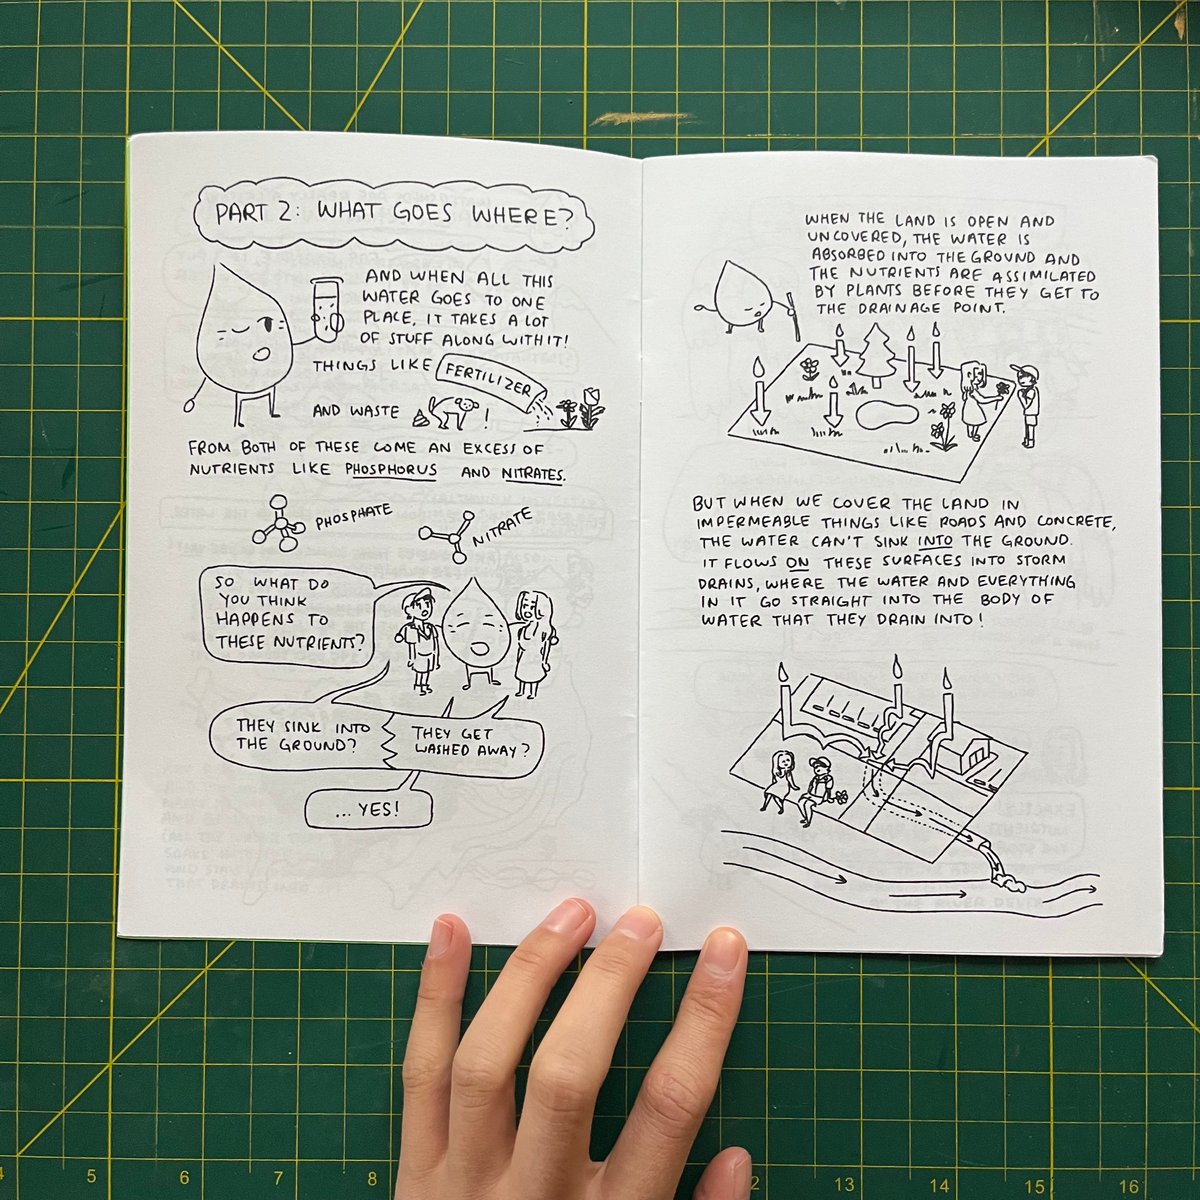 PART 2: WHAT GOES WHERE?
AND WHEN ALL THIS
WATER GOES TO ONE
PLACE, IT TAKES A LOT
OF STUFF ALONG WITH IT!
THINGS LIKE FERTILIZER
AND WASTE !
FROM BOTH OF THESE COME AN EXCESS OF
NUTRIENTS LIKE PHOSPHORUS AND NITRATES.
PHOSPHATE
NITRATE
SO WHAT DO
YOU THINK
HAPPENS TO
THESE NUTRIENTS?
THEY SINK INTO
THE GROUND?
THEY GET
WASHED AWAY?
... YES!
WHEN THE LAND IS OPEN AND
UNCOVERED, THE WATER IS
ABSORBED INTO THE GROUND AND
THE NUTRIENTS ARE ASSIMILATED
BY PLANTS BEFORE THEY GET TO
THE DRAINAGE POINT.
BUT WHEN WE COVER THE LAND IN
IMPERMEABLE THINGS LIKE ROADS AND CONCRETE,
THE WATER CAN'T SINK INTO THE GROUND.
IT FLOWS ON THESE SURFACES INTO STORM
DRAINS, WHERE THE WATER AND EVERYTHING
IN IT GO STRAIGHT INTO THE BODY OF
WATER THAT THEY DRAIN INTO!
4 5 6 7 8 2 13 14 15 16